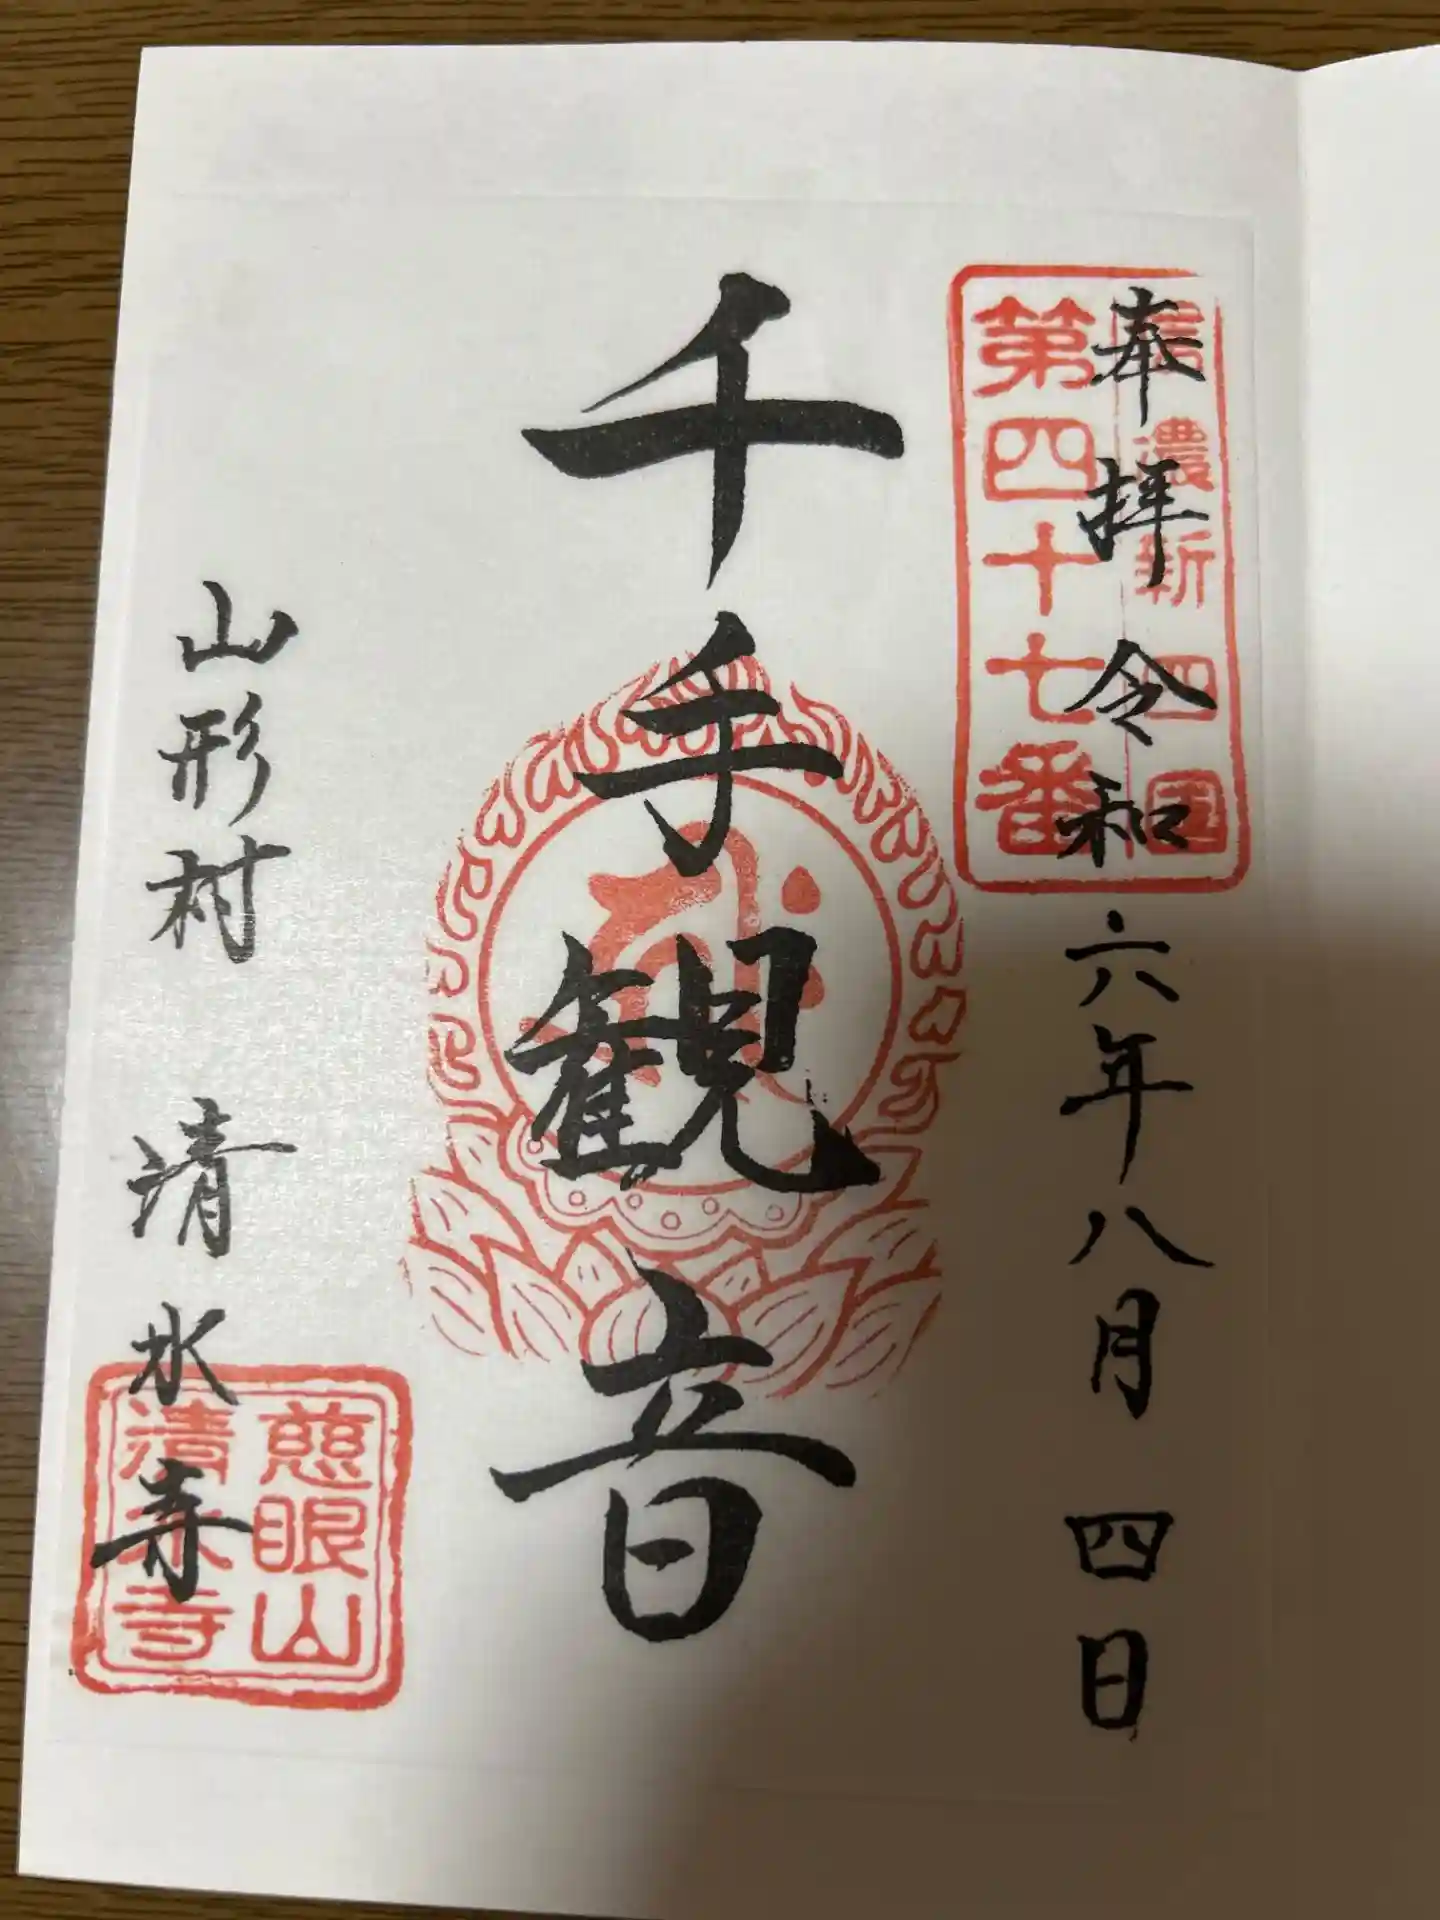 奉拝 令和六年八月四日
信濃新四国
第四十七番
千手観音
山形村 清水寺
慈眼山
清水寺